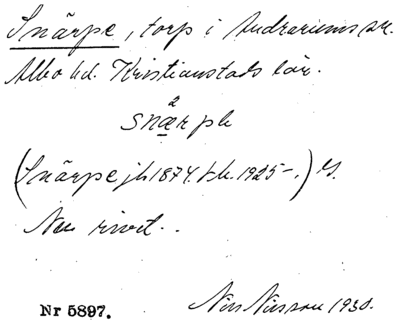 Snärpe, torp i Andrarums sn.
Albo hd. Kristianstads län.
snærpə
(Snärpe jb 1874. 1925-.)
Nu rivet.
Nr 5897. Nils Nilsson 1930.